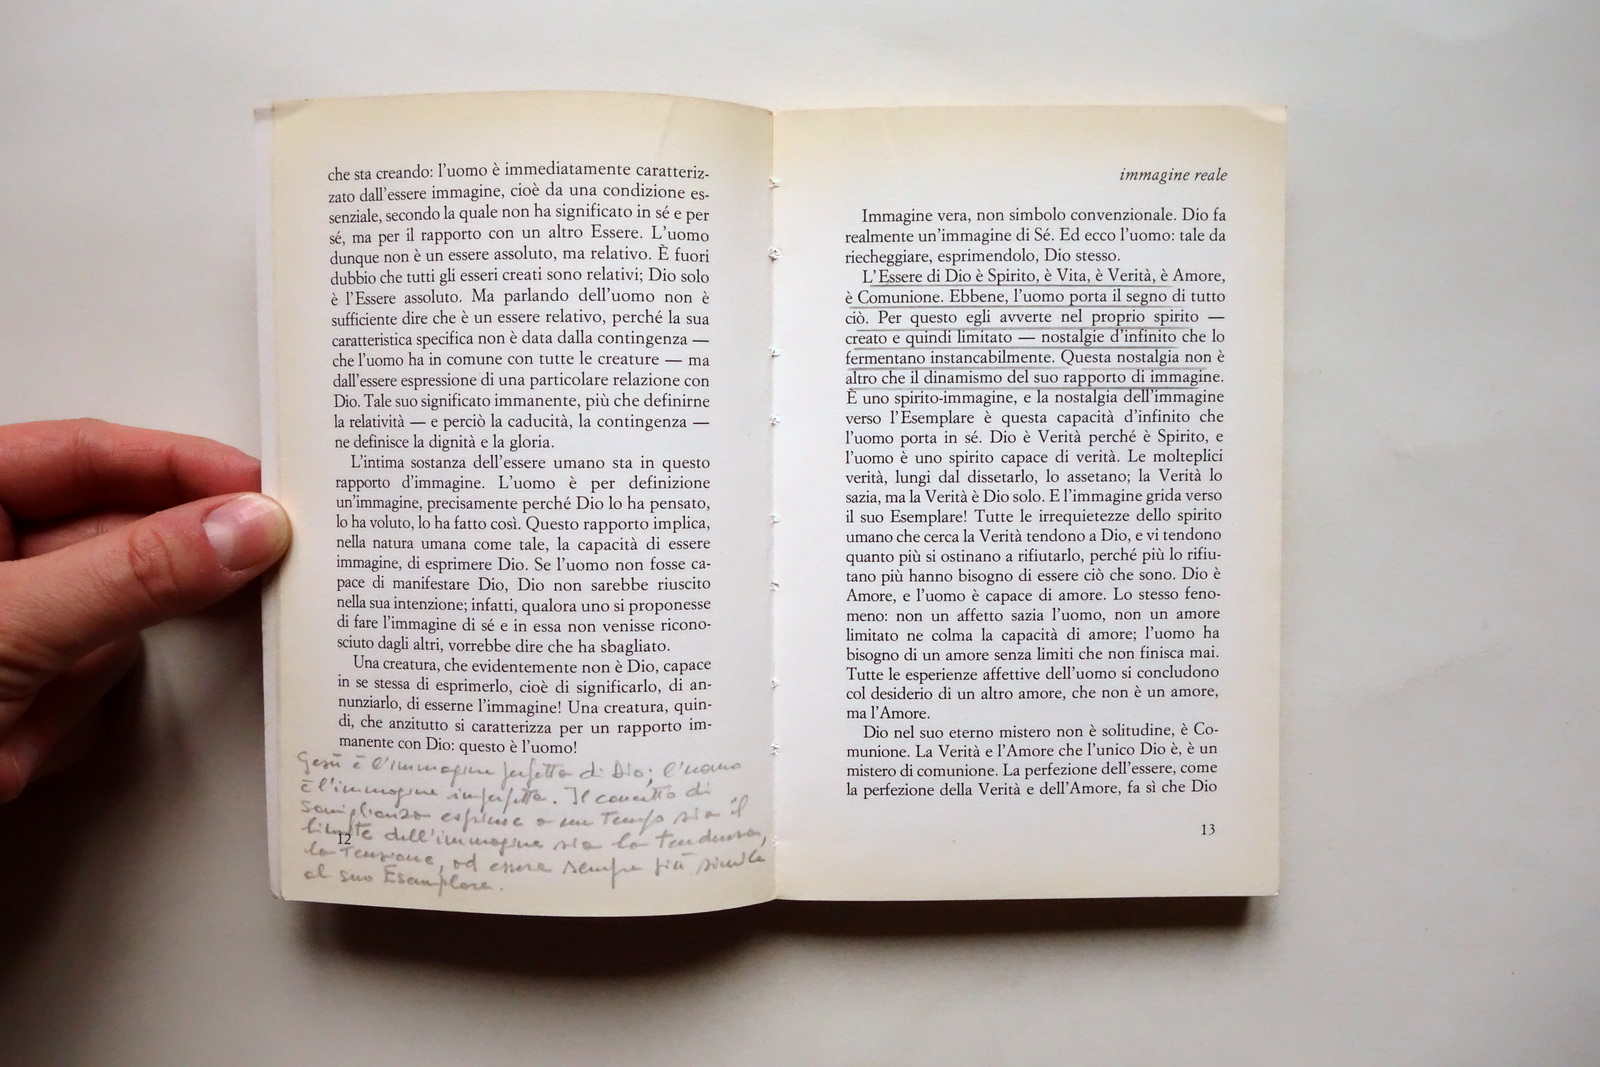 che sta creando: l'uomo è immediatamente caratteriz-
zato dall'essere immagine, cioè da una condizione es-
senziale, secondo la quale non ha significato in sé e per
sé, ma per il rapporto con un altro Essere. L'uomo
dunque non è un essere assoluto, ma relativo. È fuori
dubbio che tutti gli esseri creati sono relativi; Dio solo
è l'Essere assoluto. Ma parlando dell'uomo non è
sufficiente dire che è un essere relativo, perché la sua
caratteristica specifica non è data dalla contingenza —
che l'uomo ha in comune con tutte le creature — ma
dall'essere espressione di una particolare relazione con
Dio. Tale suo significato immanente, più che definirne
la relatività — e perciò la caducità, la contingenza —
ne definisce la dignità e la gloria.
L'intima sostanza dell'essere umano sta in questo
rapporto d'immagine. L'uomo è per definizione
un'immagine, precisamente perché Dio lo ha pensato,
lo ha voluto, lo ha fatto così. Questo rapporto implica,
nella natura umana come tale, la capacità di essere
immagine, di esprimere Dio. Se l'uomo non fosse ca-
pace di manifestare Dio, Dio non sarebbe riuscito
nella sua intenzione; infatti, qualora uno si proponesse
di fare l'immagine di sé e in essa non venisse ricono-
sciuto dagli altri, vorrebbe dire che ha sbagliato.
Una creatura, che evidentemente non è Dio, capace
in se stessa di esprimerlo, cioè di significarlo, di an-
nunziarlo, di esserne l'immagine! Una creatura, quin-
di, che anzitutto si caratterizza per un rapporto im-
manente con Dio: questo è l'uomo!
Gesù è l'immagine perfetta di Dio; l'uomo
è l'immagine imperfetta. Il concetto di
somiglianza esprime a un tempo sia il
limite dell'immagine sia la tendenza,
la tensione, ad essere sempre più simile
al suo Esemplare.
12
immagine reale
Immagine vera, non simbolo convenzionale. Dio fa
realmente un'immagine di Sé. Ed ecco l'uomo: tale da
riecheggiare, esprimendolo, Dio stesso.
L'Essere di Dio è Spirito, è Vita, è Verità, è Amore,
è Comunione. Ebbene, l'uomo porta il segno di tutto
ciò. Per questo egli avverte nel proprio spirito —
creato e quindi limitato — nostalgie d'infinito che lo
fermentano instancabilmente. Questa nostalgia non è
altro che il dinamismo del suo rapporto di immagine.
È uno spirito-immagine, e la nostalgia dell'immagine
verso l'Esemplare è questa capacità d'infinito che
l'uomo porta in sé. Dio è Verità perché è Spirito, e
l'uomo è uno spirito capace di verità. Le molteplici
verità, lungi dal dissetarlo, lo assetano; la Verità lo
sazia, ma la Verità è Dio solo. E l'immagine grida verso
il suo Esemplare! Tutte le irrequietezze dello spirito
umano che cerca la Verità tendono a Dio, e vi tendono
quanto più si ostinano a rifiutarlo, perché più lo rifiu-
tano più hanno bisogno di essere ciò che sono. Dio è
Amore, e l'uomo è capace di amore. Lo stesso feno-
meno: non un affetto sazia l'uomo, non un amore
limitato ne colma la capacità di amore; l'uomo ha
bisogno di un amore senza limiti che non finisca mai.
Tutte le esperienze affettive dell'uomo si concludono
col desiderio di un altro amore, che non è un amore,
ma l'Amore.
Dio nel suo eterno mistero non è solitudine, è Co-
munione. La Verità e l'Amore che l'unico Dio è, è un
mistero di comunione. La perfezione dell'essere, come
la perfezione della Verità e dell'Amore, fa sì che Dio
13